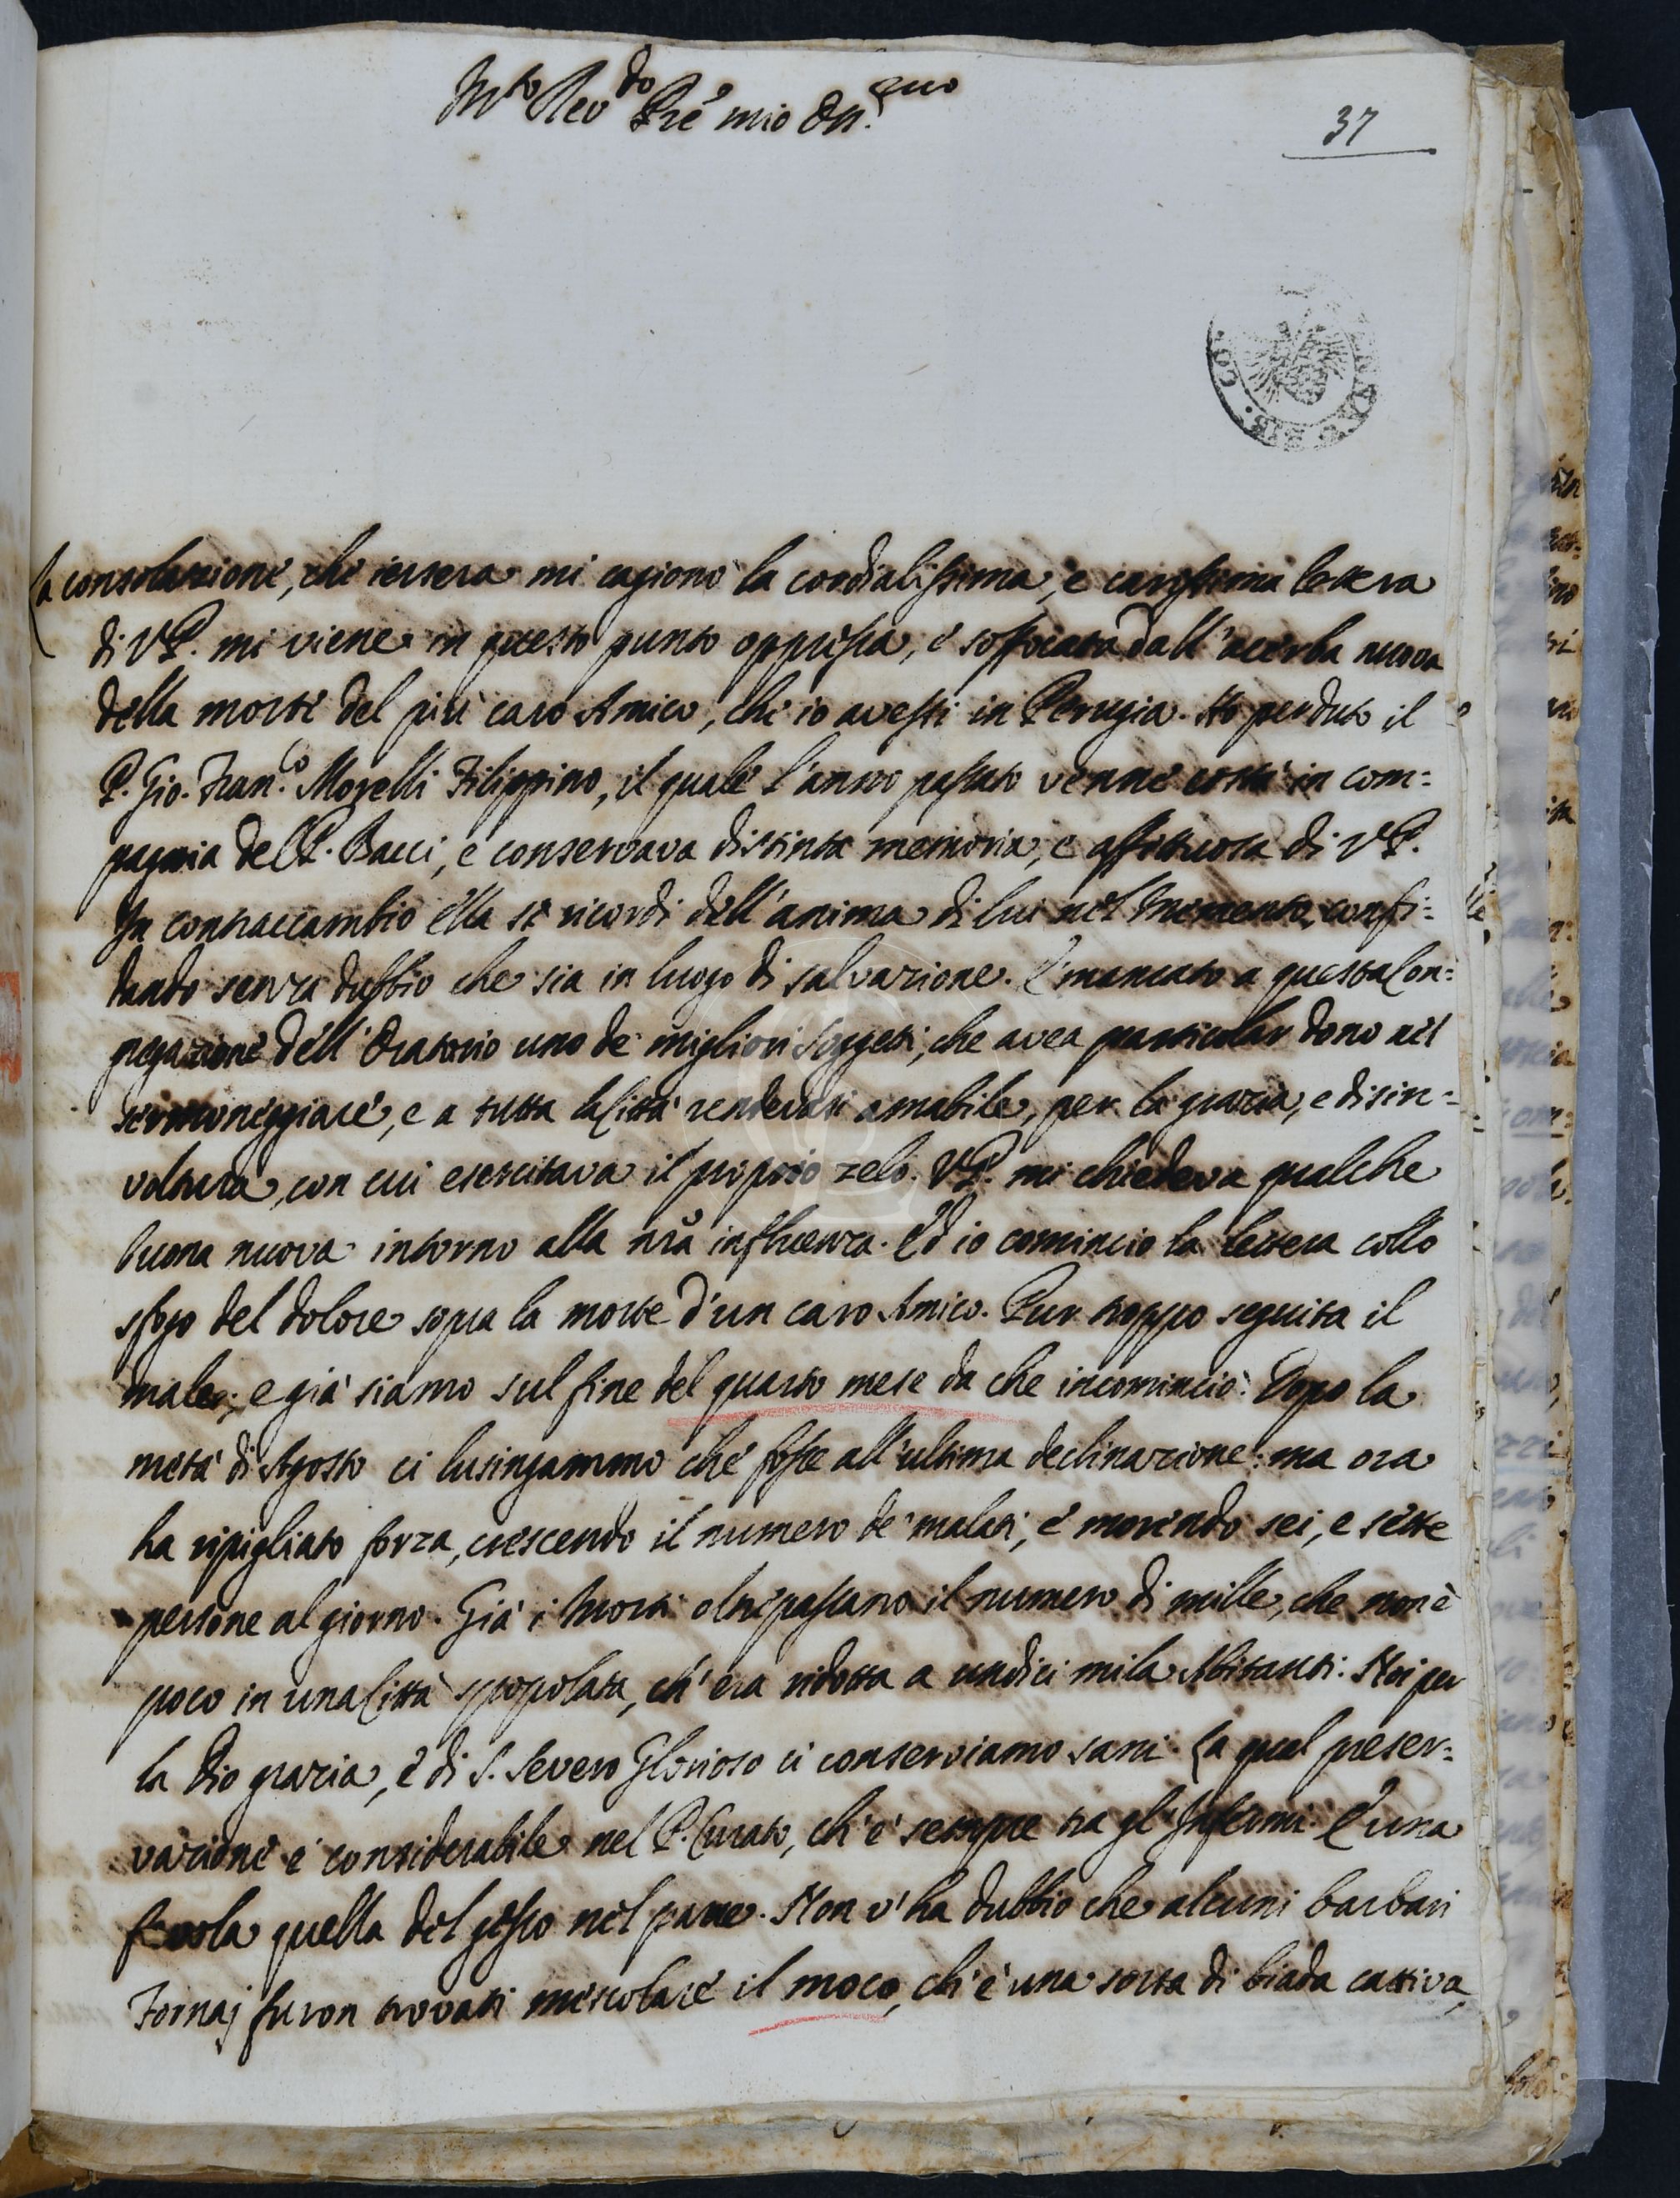 M.to Rev.do Pre mio On.emo
37
La consolazione, che iersera mi cagionò la cordialissima, e carissima lettera
di VP. mi viene in questo punto oppressa, e soffocata dall'acerba nuova
della morte del più caro Amico, che io avessi in Perugia. Ho perduto il
P. Gio. Fran.co Morelli Filippino, il quale l'anno passato venne costà in com=
pagnia del P. Bacci, e conservava distinta memoria, e affettuosa di VP.
In contraccambio ella si ricordi dell'anima di lui nel Memento, confi=
dando senza dubbio che sia in luogo di salvazione. È mancato a questa Con=
gregazione dell'Oratorio uno de' migliori Soggetti, che avea particolar dono nel
sermoneggiare, e a tutta la Città rendevasi amabile, per la grazia, e disin=
voltura, con cui esercitava il proprio zelo. VP. mi chiedeva qualche
buona nuova intorno alla nra influenza. Ed io comincio la lettera collo
sfogo del dolore sopra la morte d'un caro Amico. Pur troppo seguita il
male; e già siamo sul fine del quarto mese da che incominciò. Dopo la
metà di Agosto ci lusingammo che fosse all'ultima declinazione: ma ora
ha ripigliato forza, crescendo il numero de' malati, e morendo sei, e sette
persone al giorno. Già i Morti oltrepassano il numero di mille, che non è
poco in una Città spopolata, ch'era ridotta a undici mila Abitanti. Noi per
la Dio grazia, e di S. Severo Glorioso ci conserviamo sani. La qual preser=
vazione è considerabile nel P. Curato, ch'è sempre tra gl'Infermi. È una
favola quella del gesso nel pane. Non v'ha dubbio che alcuni barbari
Fornaj furon trovati mescolare il moco, ch'è una sorta di biada cattiva,